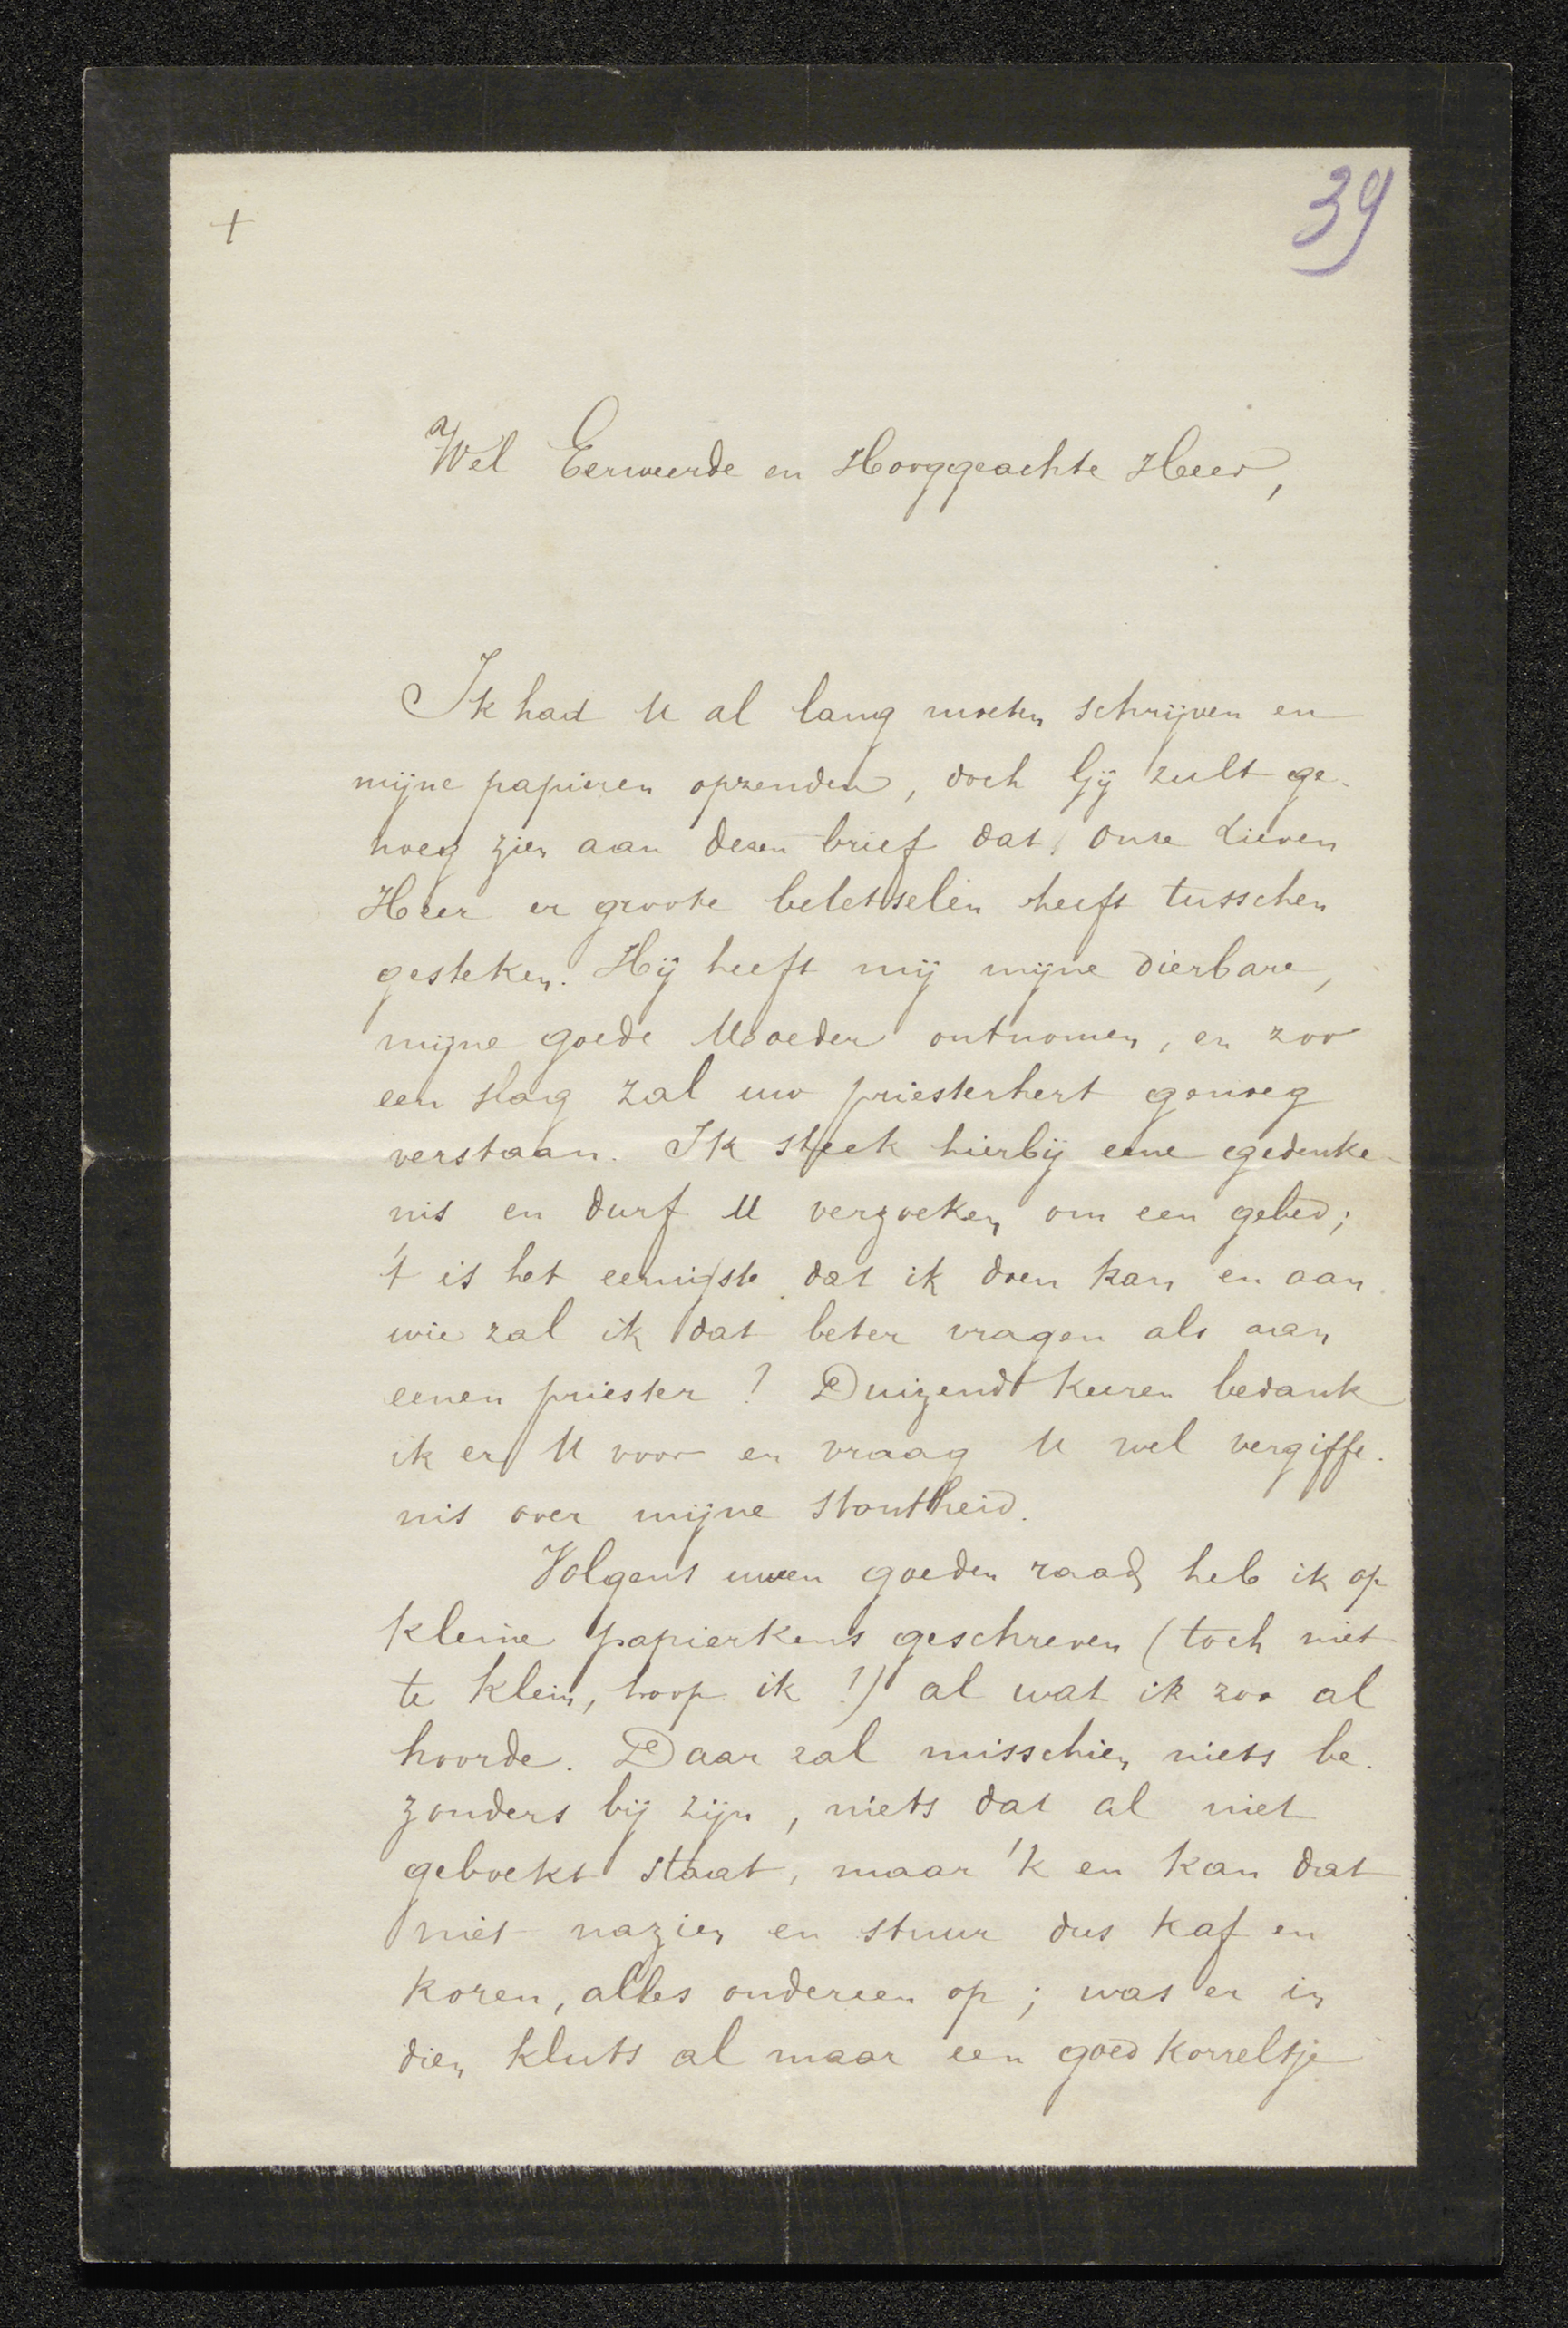 +
39
Wel Eerweerde en Hooggeachte Heer,
Ik had U al lang moeten schrijven en
mijne papieren opzenden, doch Gij zult ge-
noeg zien aan dezen brief dat Onze Lieven
Heer er groote beletselen heeft tusschen
gesteken. Hij heeft mij mijne dierbare,
mijne goede Moeder ontnomen, en zoo
een slag zal uw priesterhert genoeg
verstaan. Ik steek hierbij eene gedenke-
nis en durf U verzoeken om een gebed;
't is het eenigste dat ik doen kan en aan
wie zal ik dat beter vragen als aan
eenen priester? Duizend keeren bedank
ik er U voor en vraag U wel vergiffe-
nis over mijne stoutheid.
Volgens uwen goeden raad heb ik op
kleine papierkens geschreven (toch niet
te klein, hoop ik!) al wat ik zoo al
hoorde. Daar zal misschien niets be-
zonders bij zijn, niets dat al niet
geboekt staat, maar 'k en kan dat
niet nazien en stuur dus kaf en
koren, alles ondereen op; was er in
dien kluts al maar een goed korreltje